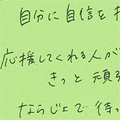 自分に自信を
応援してくれる人が
きっと頑
ならじょで待っ